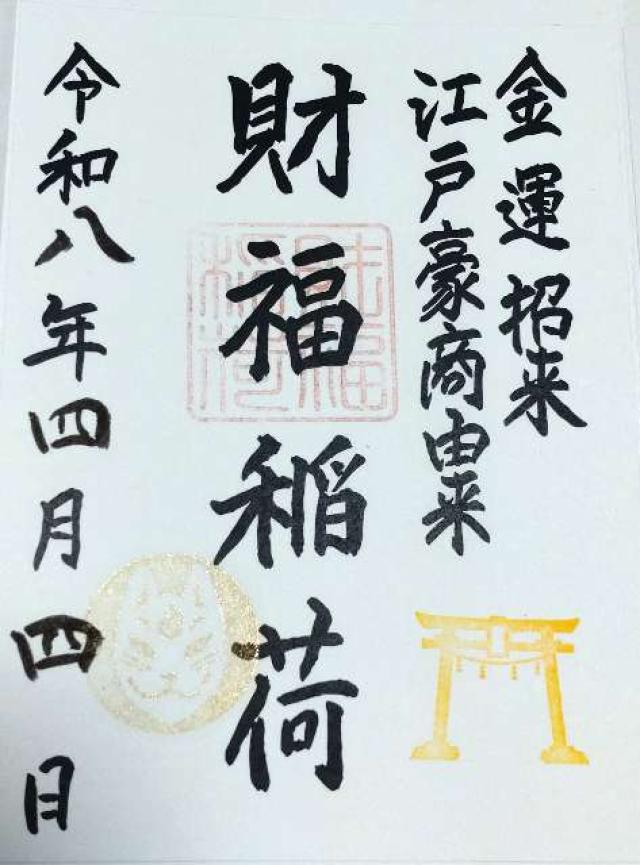 金運招来
江戸豪商由来
財福稲荷
財福稲荷
令和八年四月四日